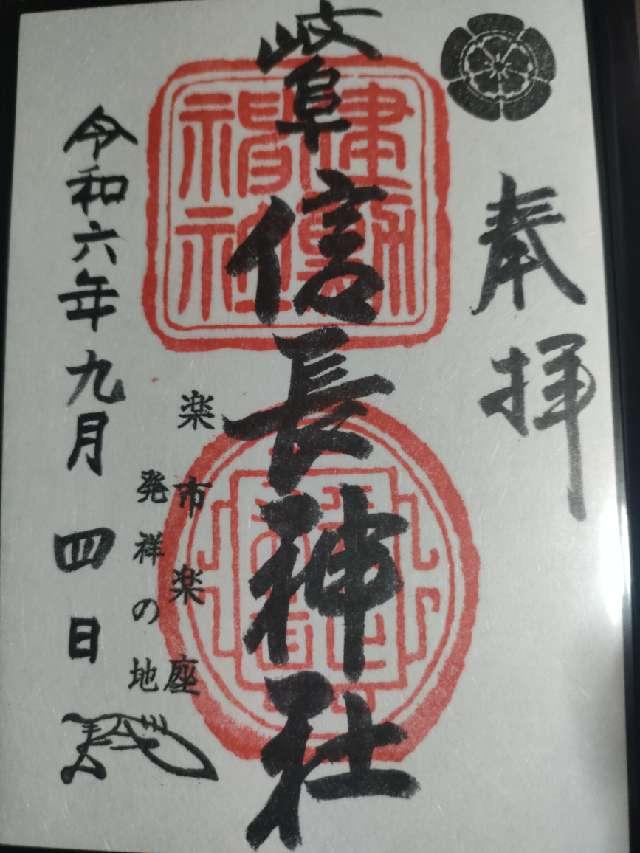 奉拝
岐阜信長神社
建勲神社
楽市楽座
発祥の地
令和六年九月四日